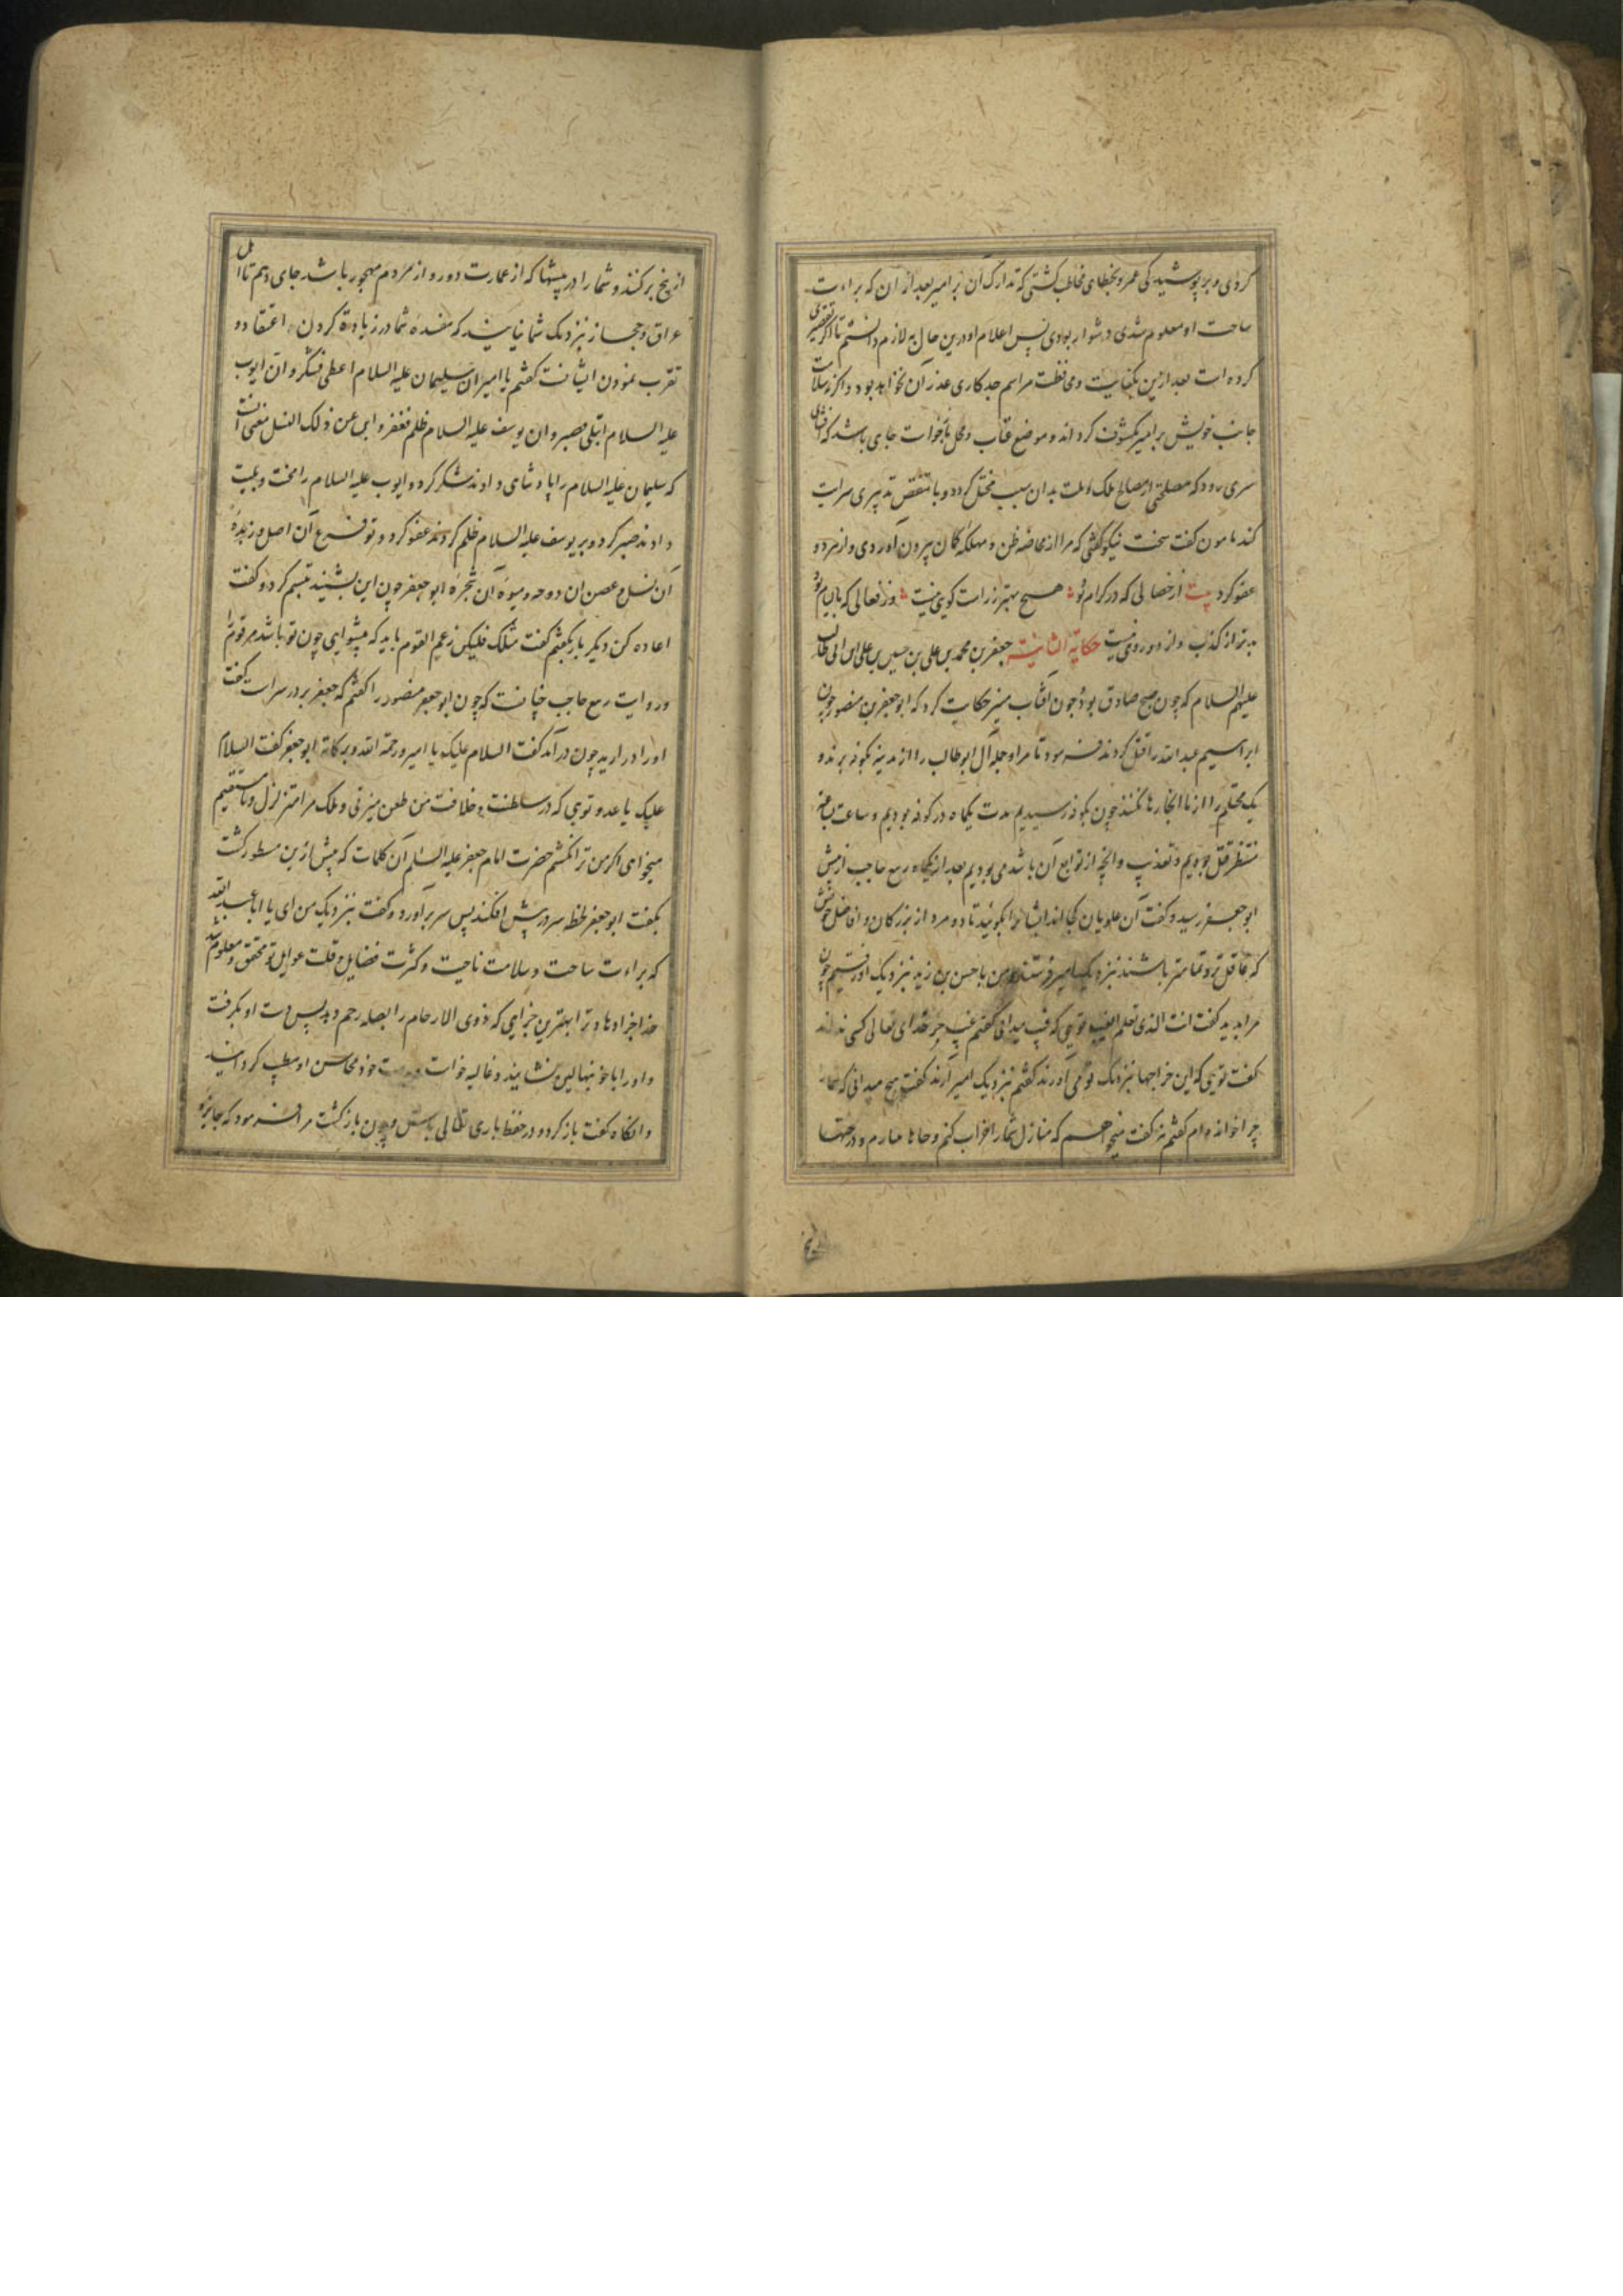 کردی و بر پوشیدگی عمرو بخطای مخاطب کشتی که تدارک آن بر امیر بعد از ان که براءت
ساحت او معلوم شدی دشوار بودی پس اعلام او درین حال به لازم دانستم تا اکر تقصیری
کرده است بعد ازین بکفایت و محافظت مراسم جد کاری عذر آن بخواهد بود و اکر نه سلامت
جانب خویش بر امیر مکشوف کرداند و موضع عتاب و محل بازخواست جای باشد که افشای
سری رود که مصلحتی از مصالح ملک و ملت بدان سبب مختل کردد و یا بنقض تدبیری سرایت
کند مامون کفت سخت نیکو کفتی که مرا از مخاضه ظن و مهلکه کمان بیرون آوردی و از مرد و
عفو کرد بیت از خصالی که در کرام بود هیچ بهتر ز راست کویی نیست وز فعالی که با لیام بود
بدتر از کذب و از دورویی نیست حکایة الثانیة جعفر بن محمد بن علی بن حسین بن علی ابن ابی طالب
علیهم السلام که چون صبح صادق بود و چون آفتاب منیر حکایت کرد که ابو جعفر بن منصور چون
ابراهیم عبد الله را قتل کردند فرمود تا مرا و جمله آل ابو طالب را از مدینه بکوفه برند و
یک محتلم را از ما انجا رها نکنند چون بکوفه رسیدیم مدت یکماه در کوفه بودیم و ساعت بساعت
منتظر قتل بودیم و تعذیب و آنچه از توابع آن باشد می بودیم بعد از یکماه ربیع حاجب از پیش
ابو جعفر رسید و کفت آن علویان کجا اند ایشانرا بکویید تا دو مرد از بزرکان و افاضل خویش
که عاقل تر و تمامتر باشند نزدیک امیر فرستند و من با حسن بن زید نزدیک او رفتیم چون
مرا بدید کفت انت الذی تعلم الغیب تویی که غیب میدانی کفتم غیب جز خدای تعالی کسی نداند
کفت تویی که این خراجها نزدیک تو می آورند کفتم نزدیک امیر آرند کفت هیچ میدانی که شما را
چرا خوانده ام کفتم نه کفت میخواهم که منازل شما را خراب کنم و جاها بینبارم و درختها
از بیخ برکنند و شما را در بیشها که از عمارت دور و از مردم مهجور باشد جای دهم تا اهل
عراق و حجاز نزدیک شما نیایند که مفسده شما در زیادة کردن اعتقاد و
تقرب نمودن ایشانست کفتم یا امیر ان سلیمان علیه السلام اعطی فشکر و ان ایوب
علیه السلام ابتلی فصبر و ان یوسف علیه السلام ظلم فغفر و انت من ذلک النسل معنی انست
که سلیمان علیه السلام را پادشاهی دادند شکر کرد و ایوب علیه السلام را محنت و بلیت
دادند صبر کرد و بر یوسف علیه السلام ظلم کردند عفو کرد و تو فرع آن اصل و زبده
آن نسل و غصن ان دوحه و میوه آن شجره ابو جعفر چون این بشنید تبسم کرد و کفت
اعاده کن دیکر بار بکفتم کفت مثلک فلیکن زعیم القوم باید که پیشوایی چون تو باشد هر قوم را
و روایت ربیع حاجب چنانست که چون ابو جعفر منصور را کفتم که جعفر بر در سراست کفت
او را در ارید چون درآمد کفت السلام علیک یا امیر و رحمة الله و برکاته ابو جعفر کفت السلام
علیک یا عدو تویی که در سلطنت و خلافت من طعن میزنی و ملک مرا متزلزل و نامستقیم
میخواهی اکر من ترا نکشم حضرت امام جعفر علیه السلم آن کلمات که پیش ازین مسطور کشت
بکفت ابو جعفر لحظه سر در پیش افکند پس سر برآورد و کفت نزدیک من ای یا ابا عبد الله
که براءت ساحت و سلامت ناحیت و کثرت فضایل و قلت غوایل تو محقق و معلوم شد
خدا جزا دهاد ترا بهترین جزایی که ذوی الارحام را بصله رحم دهد پس دست او بکرفت
و او را با خود بنهالین بنشانید و غالیه خواست و بدست خود محاسن او مطیب کردانید
و انکاه کفت باز کرد و در حفظ باری تعالی باش و چون باز کشت مرا فرمود که جایزه